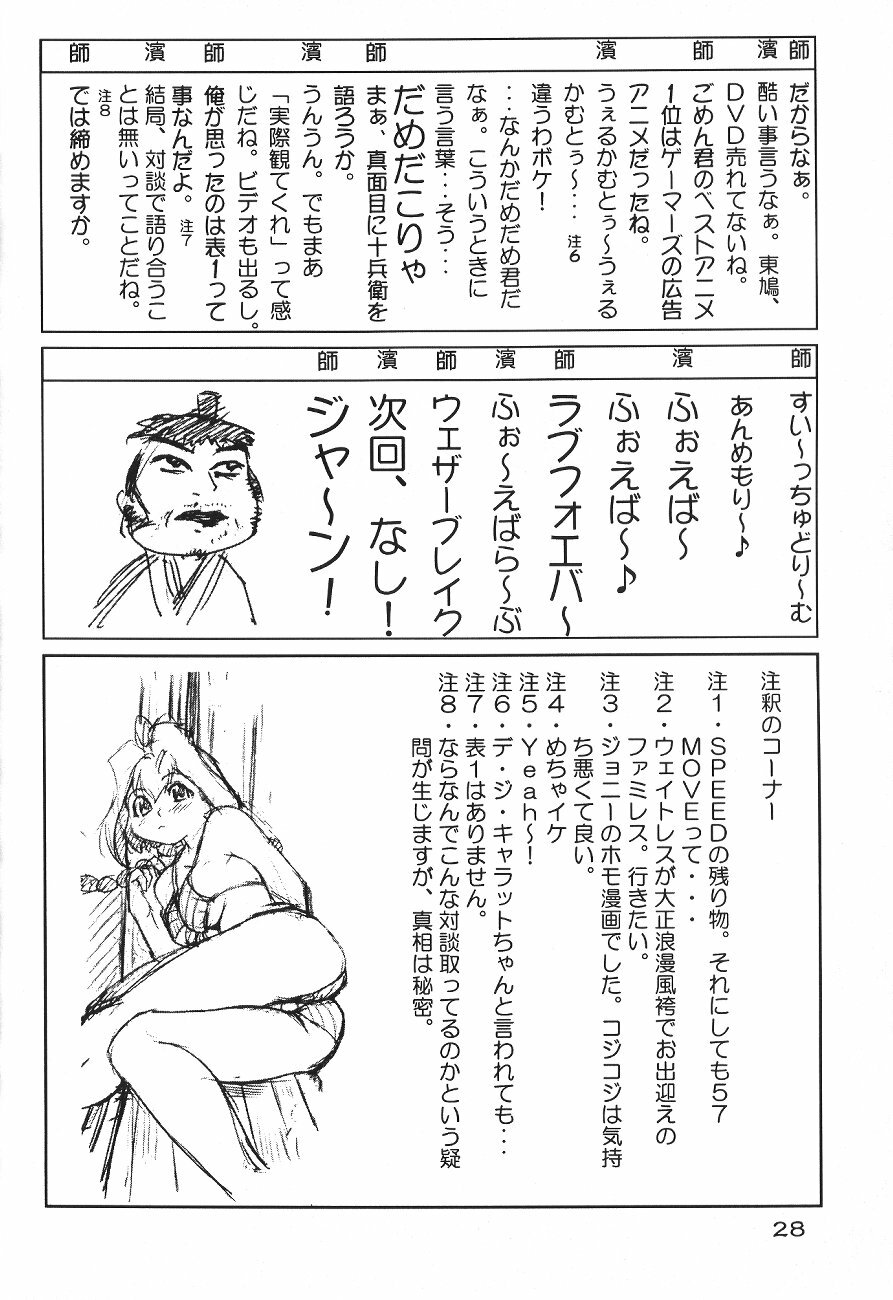 師
だからなぁ。
濱
酷い事言うなぁ。東鳩、
DVD売れてないね。
師
ごめん君のベストアニメ
1位はゲーマーズの広告
アニメだったね。
濱
うぇるかむとぅ〜うぇる
かむとぅ〜… 注6
違うわボケ!
…なんかだめだめ君だ
なぁ。こういうときに
言う言葉…そう…
だめだこりゃ
師
まぁ、真面目に十兵衛を
語ろうか。
濱
うんうん。でもまあ
「実際観てくれ」って感
じだね。ビデオも出るし。
師
俺が思ったのは表1って
事なんだよ。 注7
濱
結局、対談で語り合うこ
とは無いってことだね。
注8
師
では締めますか。
師
すい〜っちゅどり〜む
あんめもり〜♪
濱
ふぉえば〜
ふぉえば〜♪
師
ラブフォエバ〜
濱
ふぉ〜えばら〜ぶ
師
ウエザーブレイク
濱
次回、なし!
師
ジャ〜ン!
注釈のコーナー
注1・SPEEDの残り物。それにしても57
MOVEって・・・
注2・ウェイトレスが大正浪漫風袴でお出迎えの
ファミレス。行きたい。
注3・ジョニーのホモ漫画でした。コジコジは気持
ち悪くて良い。
注4・めちゃイケ
注5・Yeah〜!
注6・デ・ジ・キャラットちゃんと言われても…
注7・表1はありません。
注8・ならなんでこんな対談取ってるのかという疑
問が生じますが、真相は秘密。
28